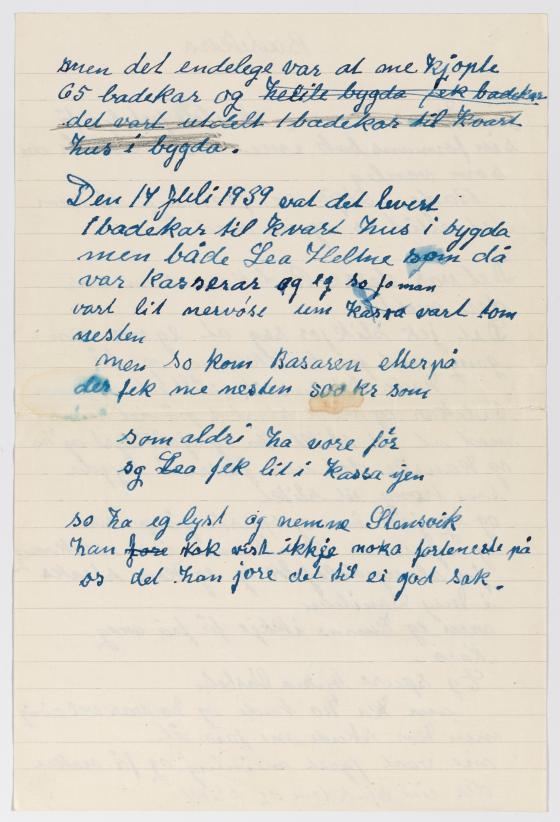 men det endelege var at me kjøpte
65 badekar og heile bygda fek badekar
det vart utdelt 1 badekar til kvart
hus i bygda.
Den 14 Juli 1939 vat det levert
1 badekar til kvart hus i bygda
men både Lea Heltne som då
var kasserar og eg so foman
vart lit nervøse um kassa vart tom
nesten
men so kom Basaren etterpå
der fek me nesten 500 kr som
som aldri ha vore før
og Lea fek lit i kassa ijen
so ha eg lyst og nemne Stensvik
han jore tok vist ikkje noka forteneste på
os det han jore det til ei god sak.